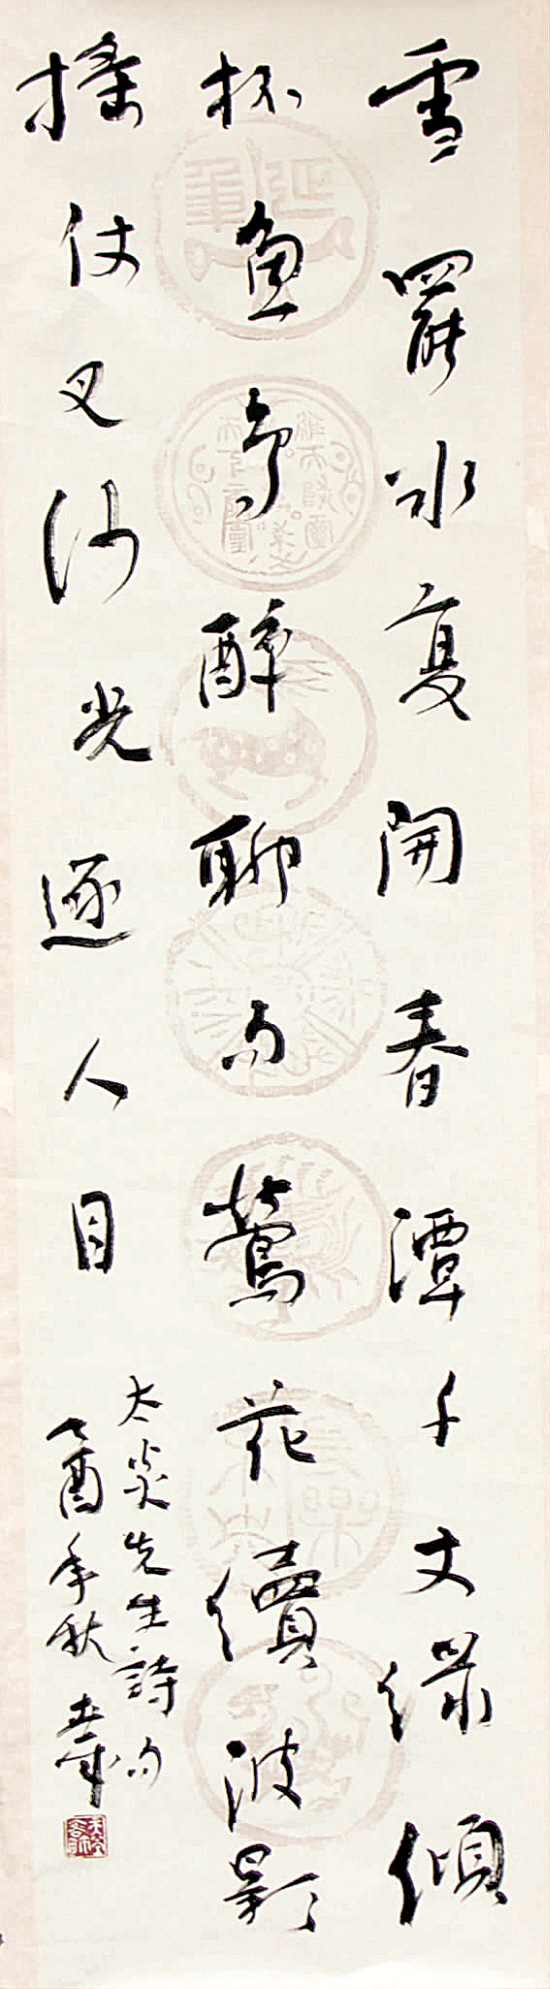 雪罷冰复開春潭千丈绿傾
杯魚鳥醉聊与鶯花續波影
搖仗又沙光逐人目
太炎先生詩句
乙酉年秋